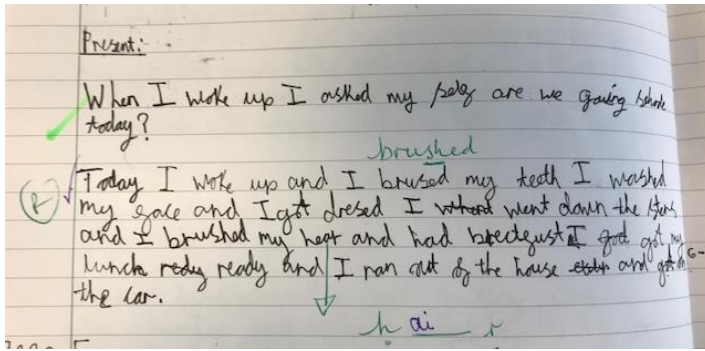 Present:
When I woke up I asked my are we going
today?
brushed
Today I woke up and I brused my teeth I washed
my face and I got dresed I went down the
and I brushed my hear and had I got my
Lunch ready and I ran out of the house and got in
the car.
h ai r